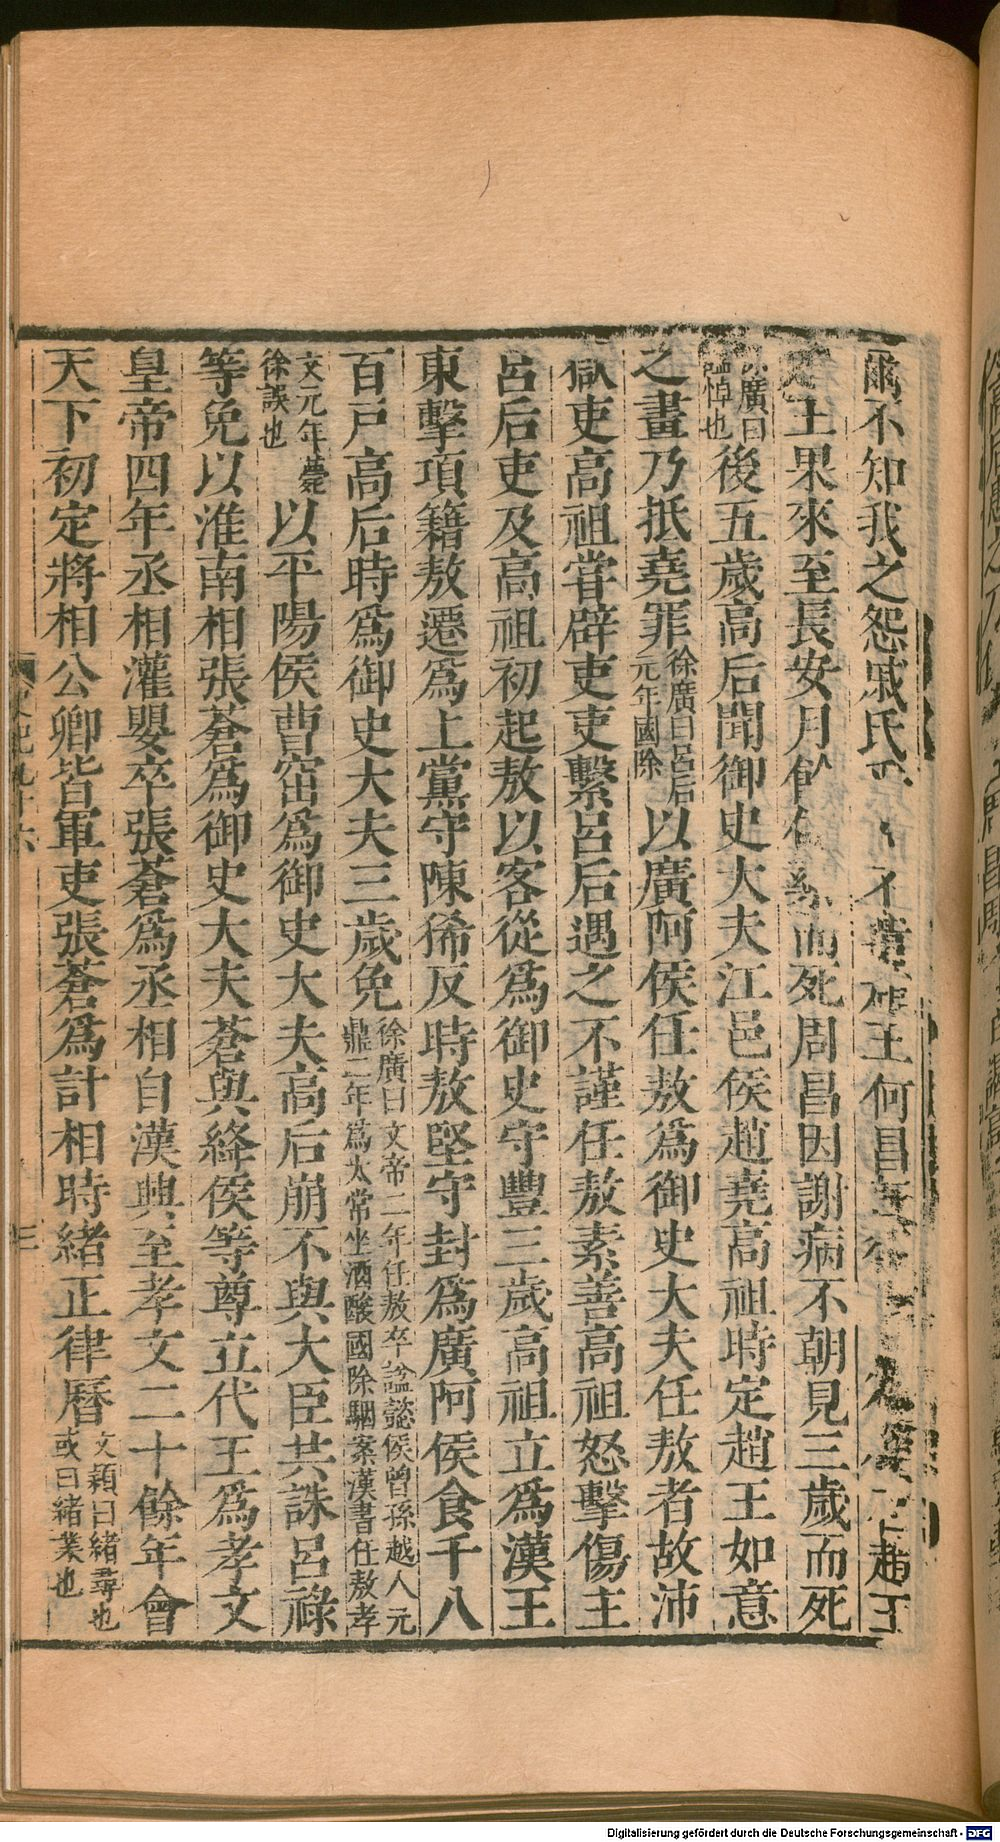 爾不知我之怨戚氏乎而不遣趙王何昌旣徵高后使使召趙王
趙王果來至長安月餘飲藥而死周昌因謝病不朝見三歲而死
徐廣曰
謚悼也
後五歲高后聞御史大夫江邑侯趙堯高祖時定趙王如意
之畫乃抵堯罪
徐廣曰呂后
元年國除
以廣阿侯任敖爲御史大夫任敖者故沛
獄吏高祖嘗辟吏吏繫呂后遇之不謹任敖素善高祖怒擊傷主
呂后吏及高祖初起敖以客從爲御史守豐三歲高祖立爲漢王
東擊項籍敖遷爲上黨守陳豨反時敖堅守封爲廣阿侯食千八
百戶高后時爲御史大夫三歲免
徐廣曰文帝二年任敖卒謚懿侯曾孫越人元
鼎二年爲太常坐酒酸國除駰案漢書任敖孝
文元年薨
徐誤也
以平陽侯曹窋爲御史大夫高后崩不與大臣共誅呂祿
等免以淮南相張蒼爲御史大夫蒼與絳侯等尊立代王爲孝文
皇帝四年丞相灌嬰卒張蒼爲丞相自漢興至孝文二十餘年會
天下初定將相公卿皆軍吏張蒼爲計相時緒正律曆
文穎曰緒尋也
或曰緒業也
史記九十六
三
Digitalisierung gefördert durch die Deutsche Forschungsgemeinschaft - DFG